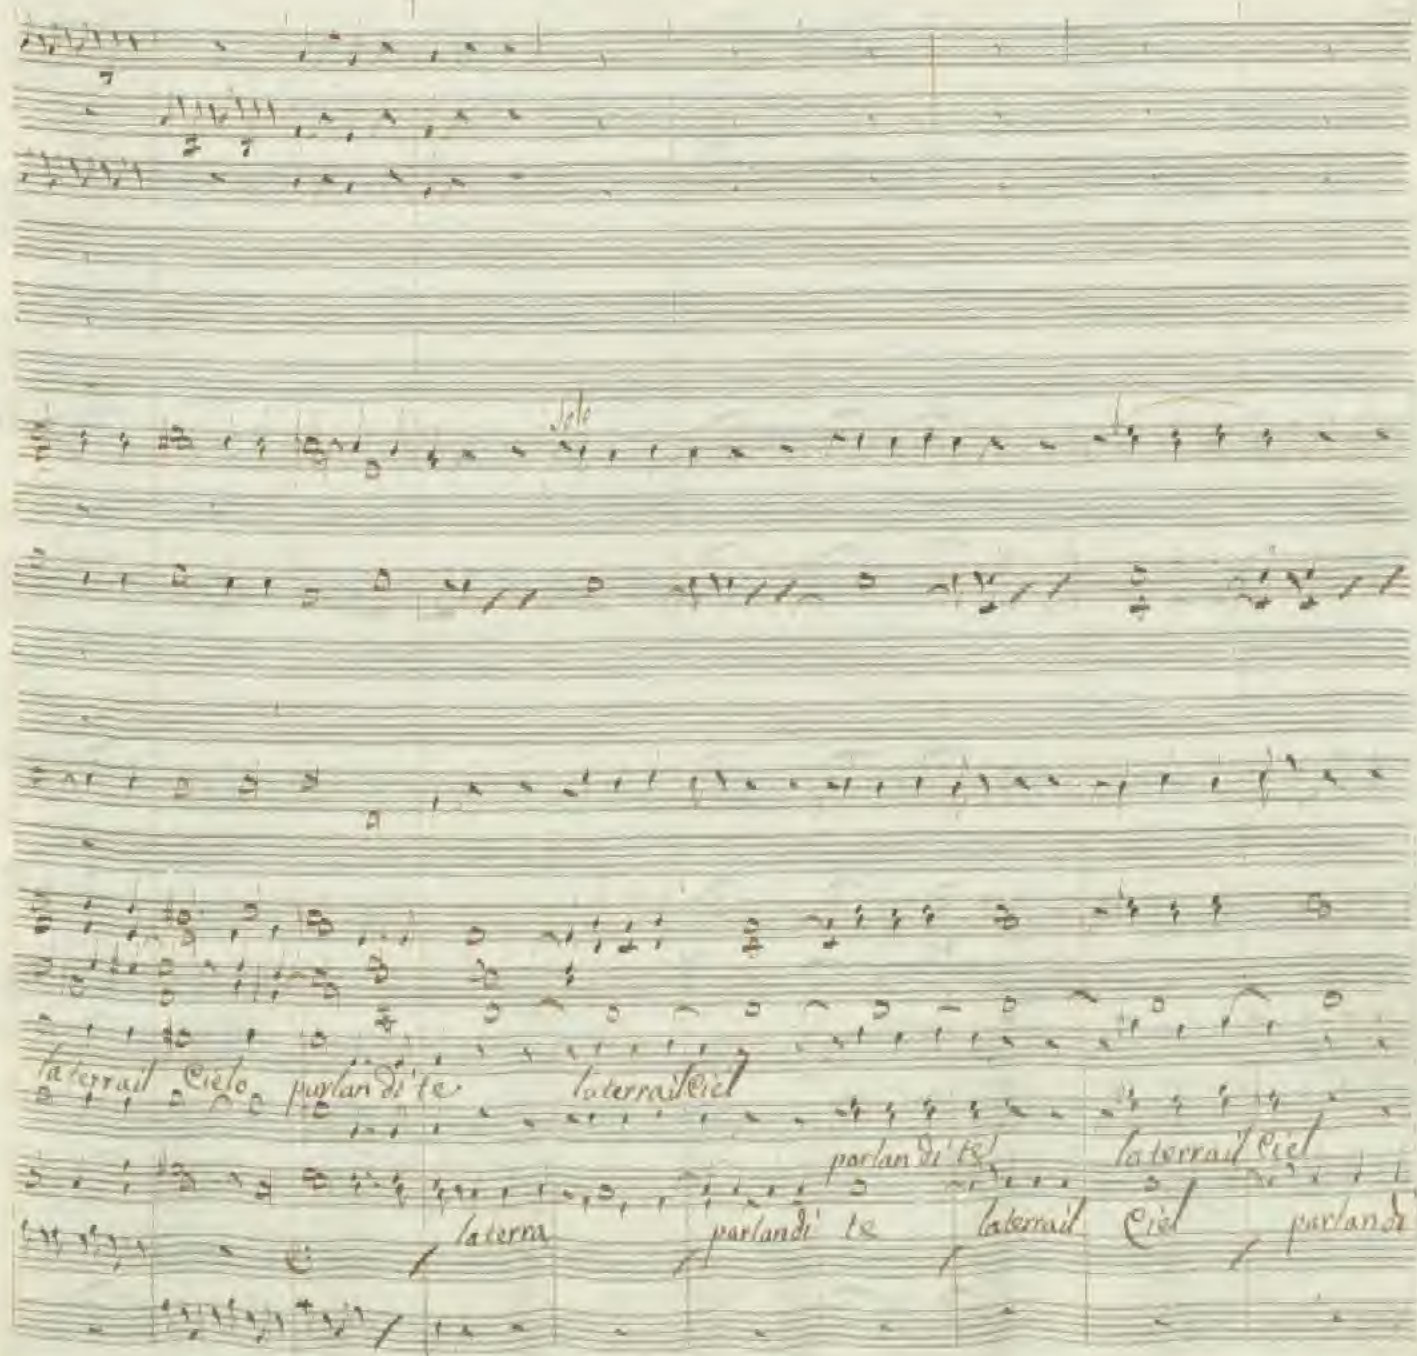 7
7 7
Solo
la terra il Cielo parlan di te la terra il Ciel
parlan di te la terra il Ciel
la terra parlan di te la terra il Ciel parlan di